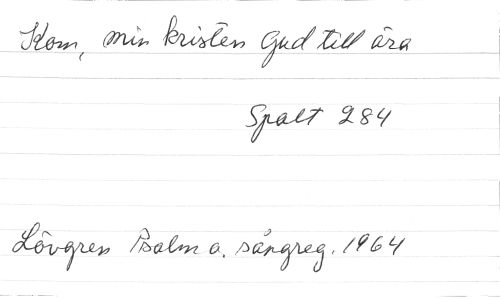 Kom, min kristen Gud till ära
Spalt 284
Lövgren Psalm o. sångreg. 1964